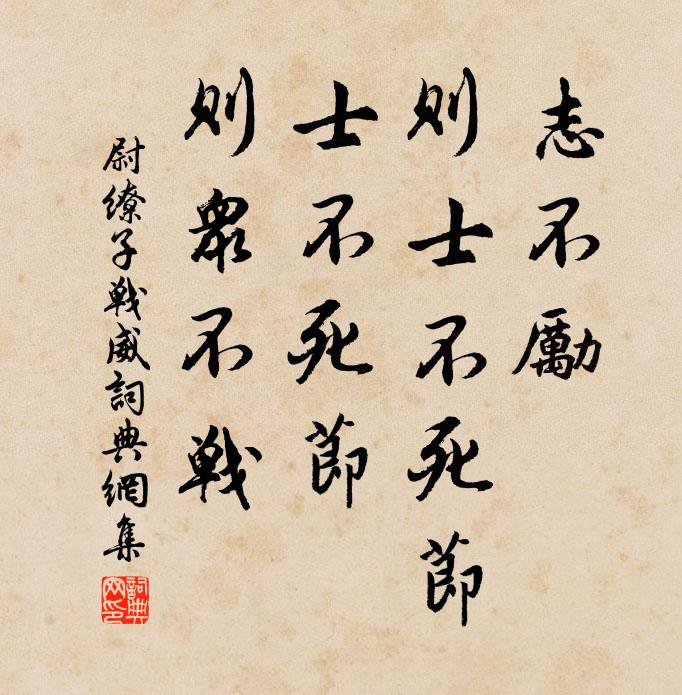 志不勵
則士不死節
士不死節
則眾不戰
尉繚子戰威詞典網集
詞典網印